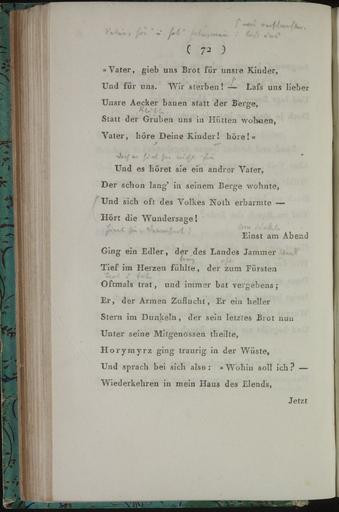 ( 72 )
»Vater, gieb uns Brot für unsre Kinder,
Und für uns. Wir sterben! — Lafs uns lieber
Unsre Aecker bauen statt der Berge,
Statt der Gruben uns in Hütten wohnen,
Vater, höre Deine Kinder! höre!«
Und es höret sie ein andrer Vater,
Der schon lang' in seinem Berge wohnte,
Und sich oft des Volkes Noth erbarmte —
Hört die Wundersage!
Einst am Abend
Ging ein Edler, der des Landes Jammer
Tief im Herzen fühlte, der zum Fürsten
Oftmals trat, und immer bat vergebens;
Er, der Armen Zuflucht, Er ein heller
Stern im Dunkeln, der sein letztes Brot nun
Unter seine Mitgenossen theilte,
Horymyrz ging traurig in der Wüste,
Und sprach bei sich also: »Wohin soll ich? —
Wiederkehren in mein Haus des Elends,
Jetzt